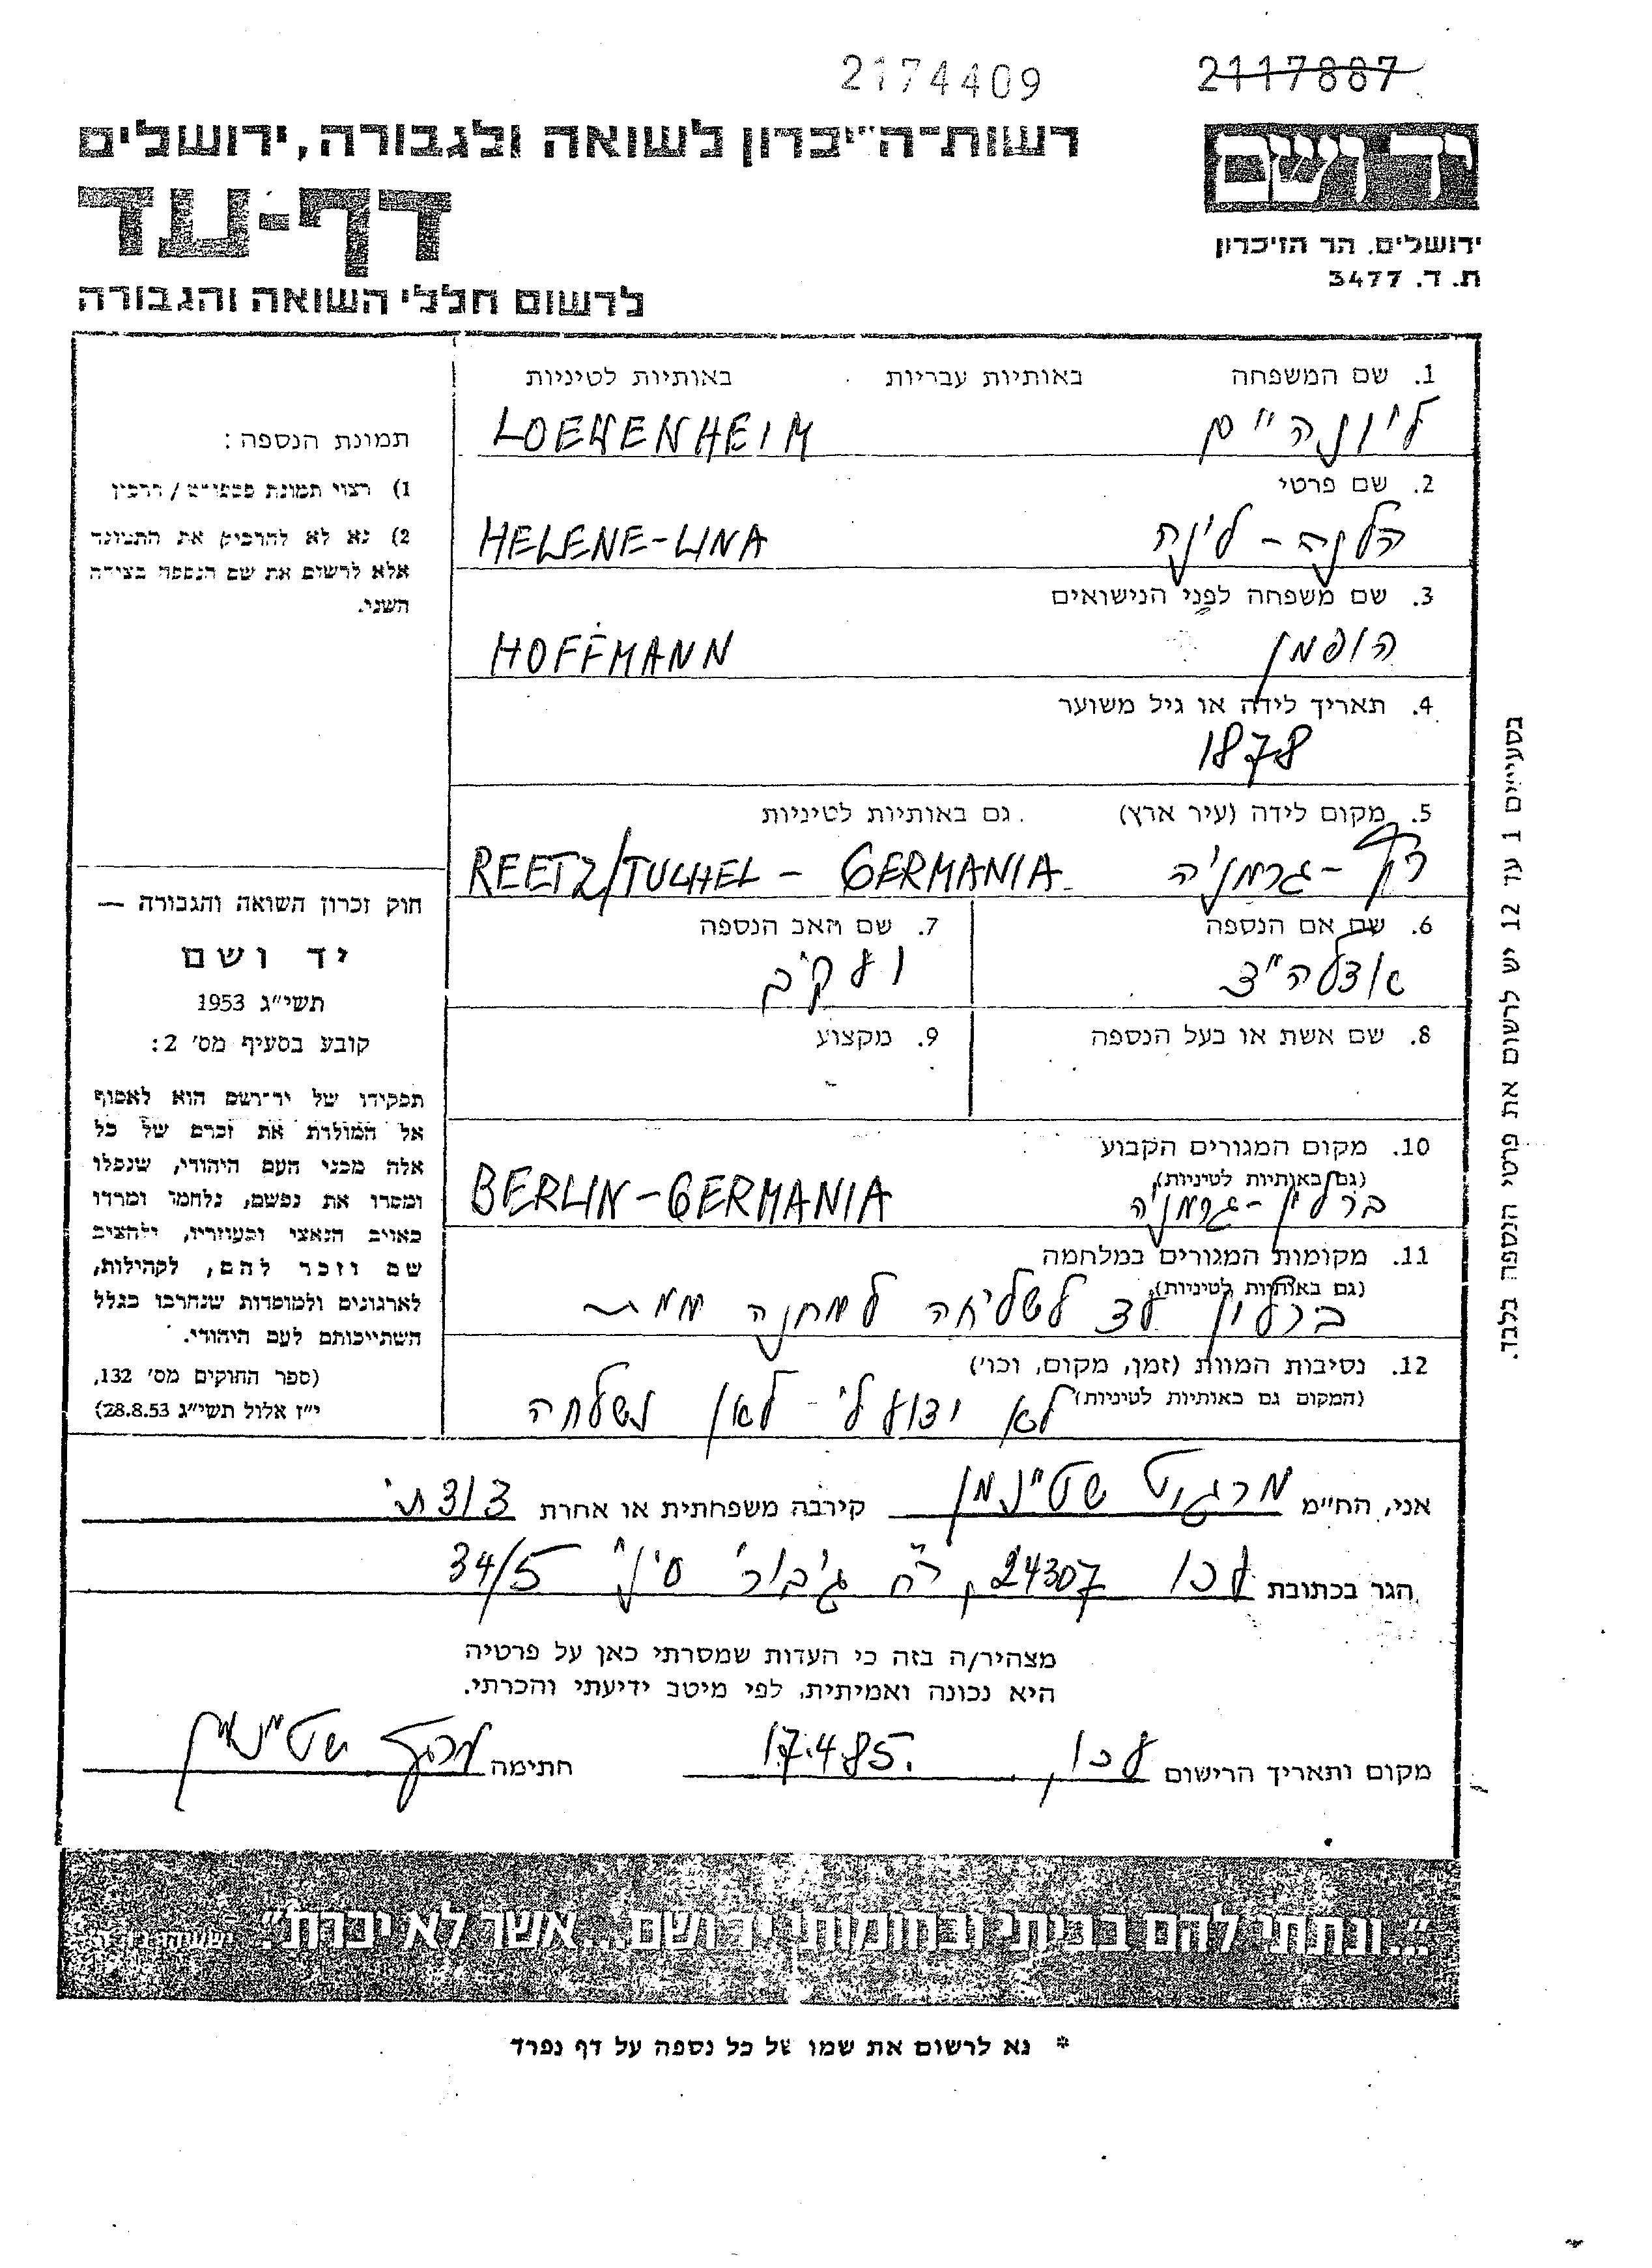 2174409 2117887
רשות-הזיכרון לשואה ולגבורה, ירושלים
יד ושם
דף-עד
ירושלים. הר הזיכרון
ת. ד. 3477
לרשום חללי השואה והגבורה
1. שם המשפחה באותיות עבריות באותיות לטיניות
ליונהיים LOEWENHEIM
2. שם פרטי
הלנה - לינה HELENE-LINA
3. שם משפחה לפני הנישואים
הופמן HOFFMANN
4. תאריך לידה או גיל משוער
1878
5. מקום לידה (עיר ארץ) גם באותיות לטיניות
רץ - גרמניה REETZ/TUCHEL - GERMANIA
6. שם אם הנספה 7. שם האב הנספה
אדלהייד יעקב
8. שם אשת או בעל הנספה 9. מקצוע
10. מקום המגורים הקבוע
(גם באותיות לטיניות)
ברלין - גרמניה BERLIN-GERMANIA
11. מקומות המגורים במלחמה
(גם באותיות לטיניות)
ברלין עד לשליחה למחנה מות
12. נסיבות המוות (זמן, מקום, וכו')
(המקום גם באותיות לטיניות)
לא ידוע לי - לאן נשלחה
תמונת הנספה:
1) רצוי תמונת פספורט / דרכון
2) נא לא להדביק את התמונה
אלא לרשום את שם הנספה בצידה
השני.
חוק זכרון השואה והגבורה —
יד ושם
תשי"ג 1953
קובע בסעיף מס' 2:
תפקידו של יד-ושם הוא לאסוף
אל המולדת את זכרם של כל
אלה מבני העם היהודי, שנפלו
ומסרו את נפשם, נלחמו ומרדו
באויב הנאצי ובעוזריו, ולהציב
שם וזכר להם, לקהילות,
לארגונים ולמוסדות שנחרבו בגלל
השתייכותם לעם היהודי.
(ספר החוקים מס' 132,
י"ז אלול תשי"ג 28.8.53)
בסעייים 1 עד 12 יש לרשום את פרטי הנספה בלבד.
אני, הח"מ מרגיט שטיינמן קירבה משפחתית או אחרת דודתי
הגר בכתובת עכו 24307, רח גיבורי סיני 34/5
מצהיר/ה בזה כי העדות שמסרתי כאן על פרטיה
היא נכונה ואמיתית, לפי מיטב ידיעתי והכרתי.
מקום ותאריך הרישום עכו, 17.4.85. חתימה מרגיט שטיינמן
"...ונתתי להם בביתי ובחומותי יד ושם... אשר לא יכרת".
* נא לרשום את שמו של כל נספה על דף נפרד